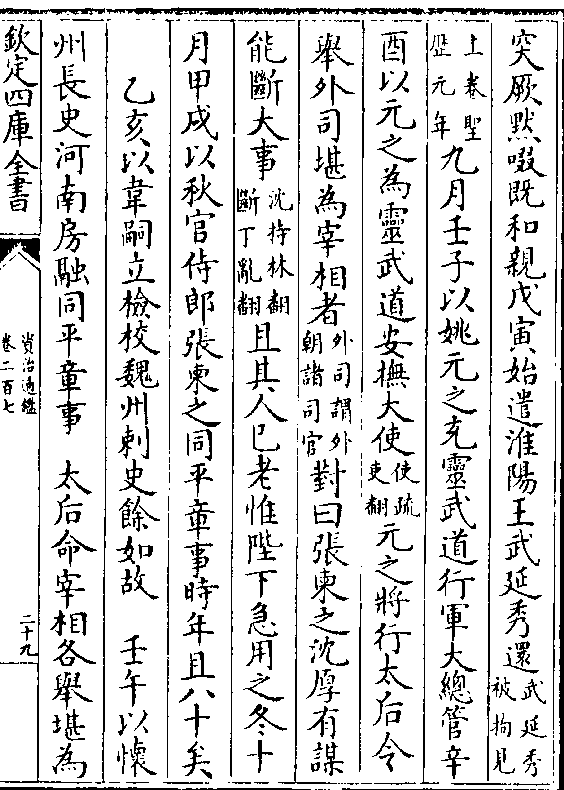 突厥默啜既和親戊寅始遣淮陽王武延秀還武延秀被拘見
上卷聖歴元年九月壬子以姚元之充靈武道行軍大總管辛
酉以元之為靈武道安撫大使使疏吏翻元之將行太后令
舉外司堪為宰相者外司謂外朝諸司官對曰張柬之沈厚有謀
能斷大事沈持林翻斷丁亂翻且其人已老惟陛下急用之冬十
月甲戌以秋官侍郎張柬之同平章事時年且八十矣
乙亥以韋嗣立檢校魏州刺史餘如故 壬午以懷
州長史河南房融同平章事 太后命宰相各舉堪為
欽定四庫全書
資治通鑑
卷二百七
二十九